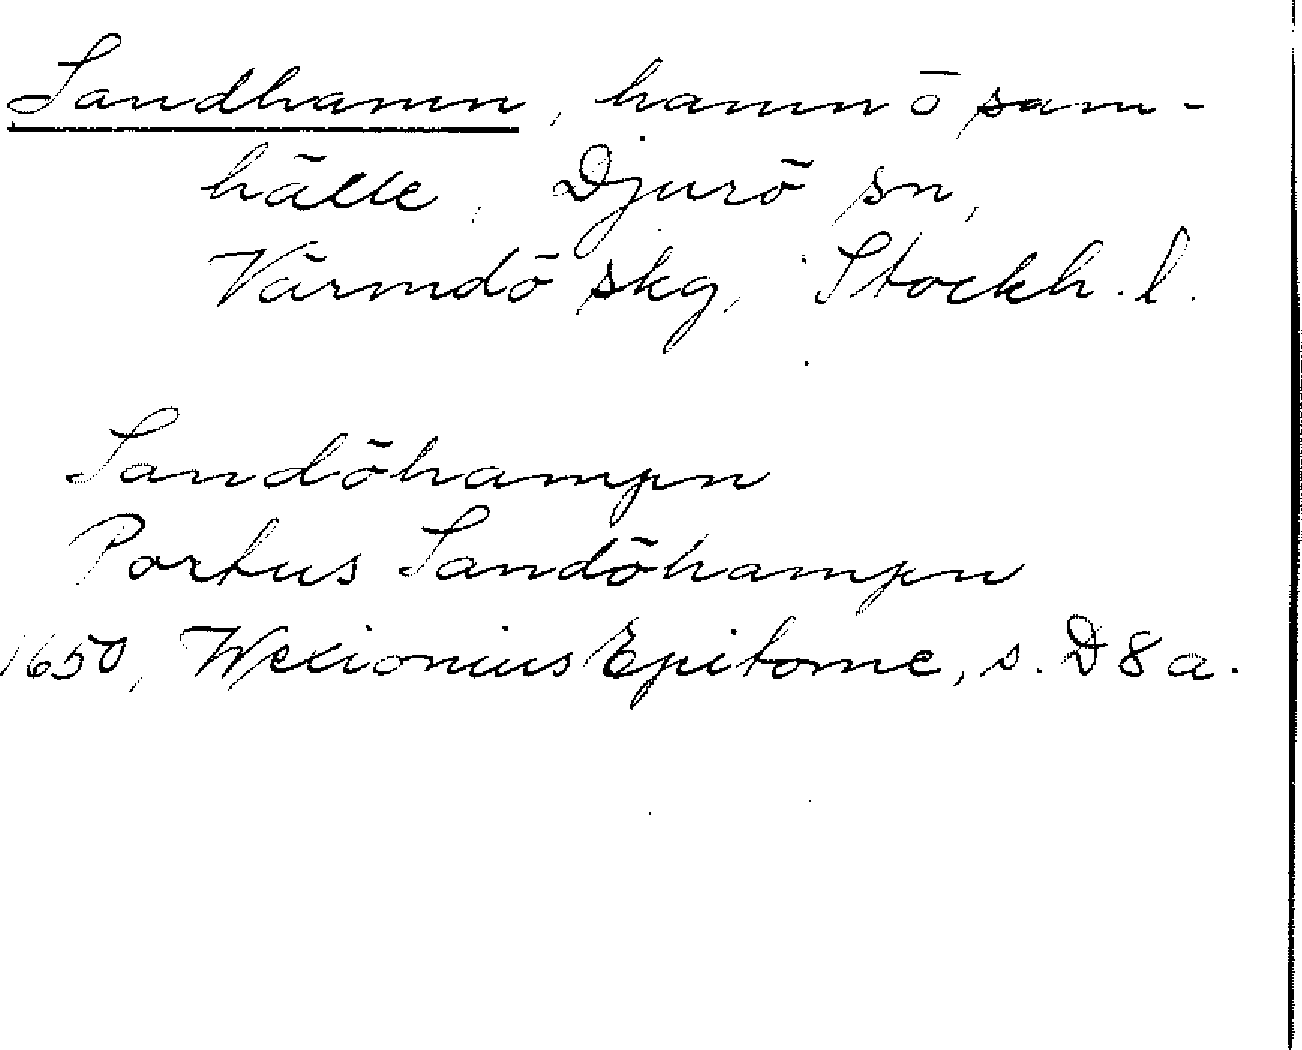 Sandhamn, hamn o sam-
hälle, Djurö sn,
Värmdö skg, Stockh. l.
Sandöhampn
Portus Sandöhampn
1650, Wexionius Epitome, s. D 8 a.